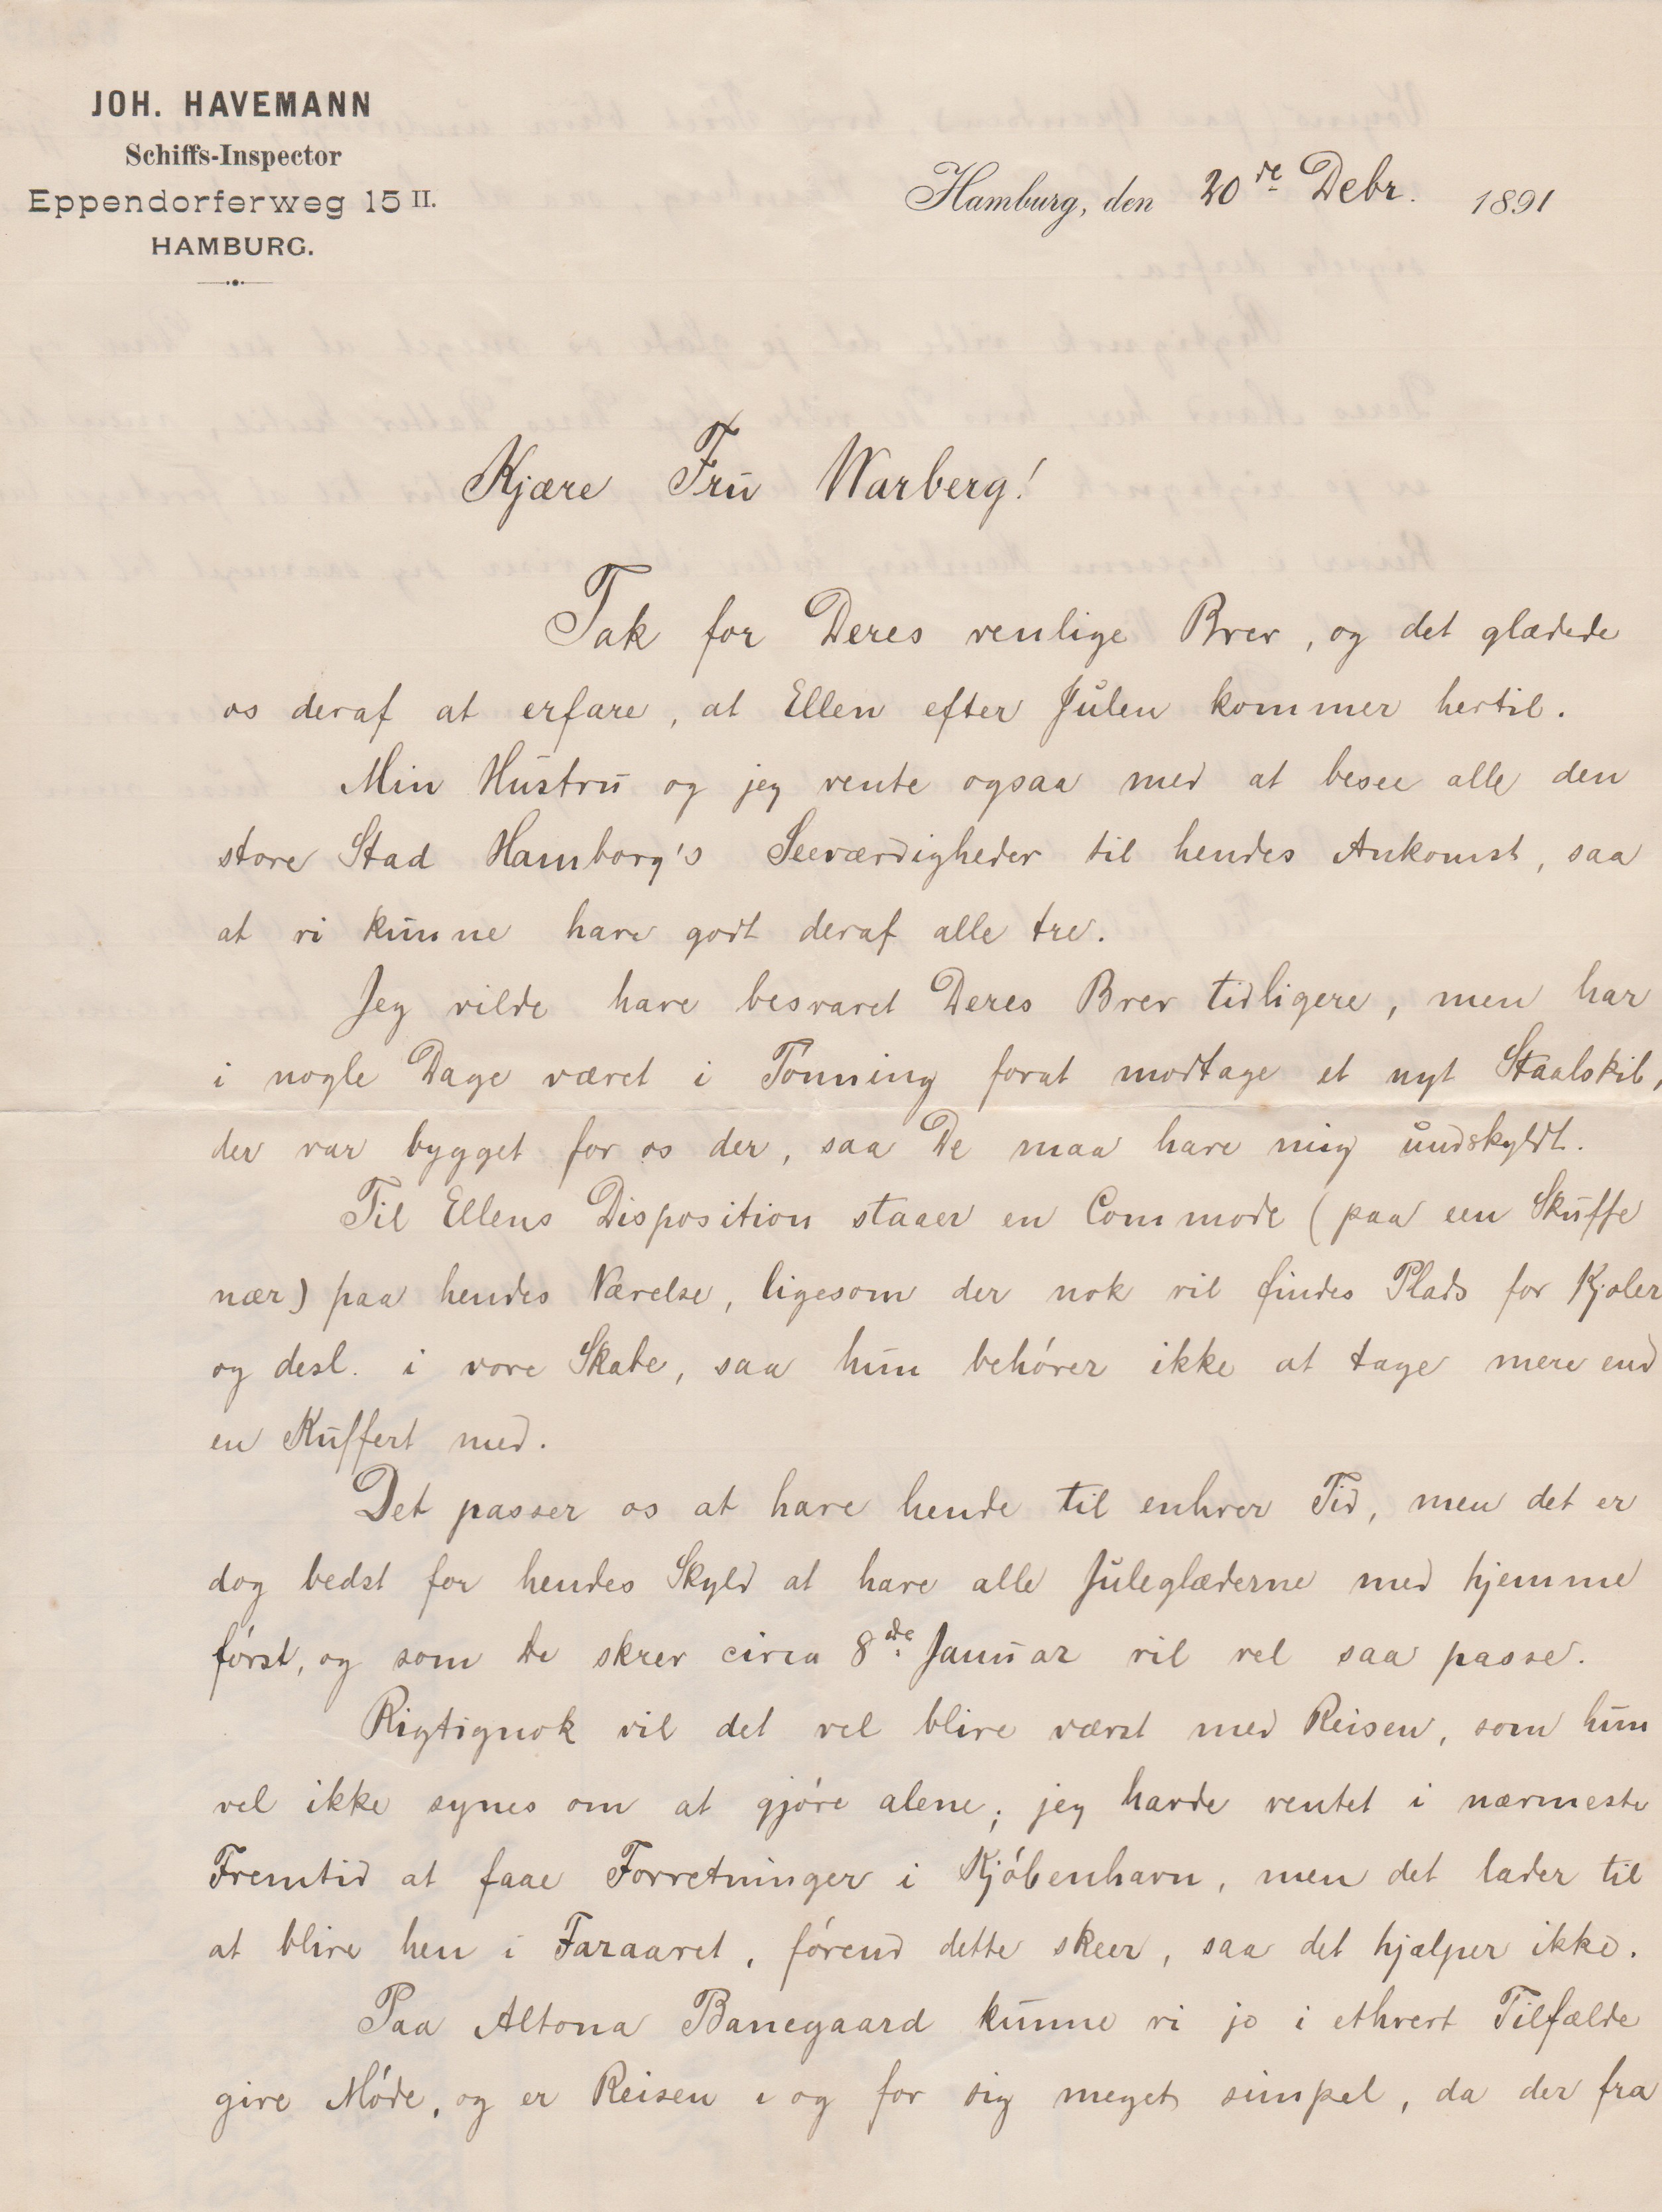 JOH. HAVEMANN
Schiffs-Inspector
Eppendorferweg 15 II.
HAMBURG.
Hamburg, den 20de Debr. 1891
Kjære Fru Warberg!
Tak for Deres venlige Brev, og det glædede
os deraf at erfare, at Ellen efter Julen kommer hertil.
Min Hustru og jeg vente ogsaa med at besee alle den
store Stad Hamborg's Seeværdigheder til hendes Ankomst, saa
at vi kunne have godt deraf alle tre.
Jeg vilde have besvaret Deres Brev tidligere, men har
i nogle Dage været i Tønning forat modtage et nyt Staalskib,
der var bygget for os der, saa De maa have mig undskyldt.
Til Ellens Disposition staaer en Commode (paa een Skuffe
nær) paa hendes Værelse, ligesom der nok vil findes Plads for Kjoler
og desl. i vore Skabe, saa hun behøver ikke at tage mere end
en Kuffert med.
Det passer os at have hende til enhver Tid, men det er
dog bedst for hendes Skyld at have alle Juleglæderne med hjemme
først, og som De skrev circa 8de Januar vil vel saa passe.
Rigtignok vil det vel blive værst med Reisen, som hun
vel ikke synes om at gjøre alene; jeg havde ventet i nærmeste
Fremtid at faae Forretninger i Kjøbenhavn, men det lader til
at blive hen i Foraaret, førend dette skeer, saa det hjælper ikke.
Paa Altona Banegaard kunne vi jo i ethvert Tilfælde
give Møde, og er Reisen i og for sig meget simpel, da der fra